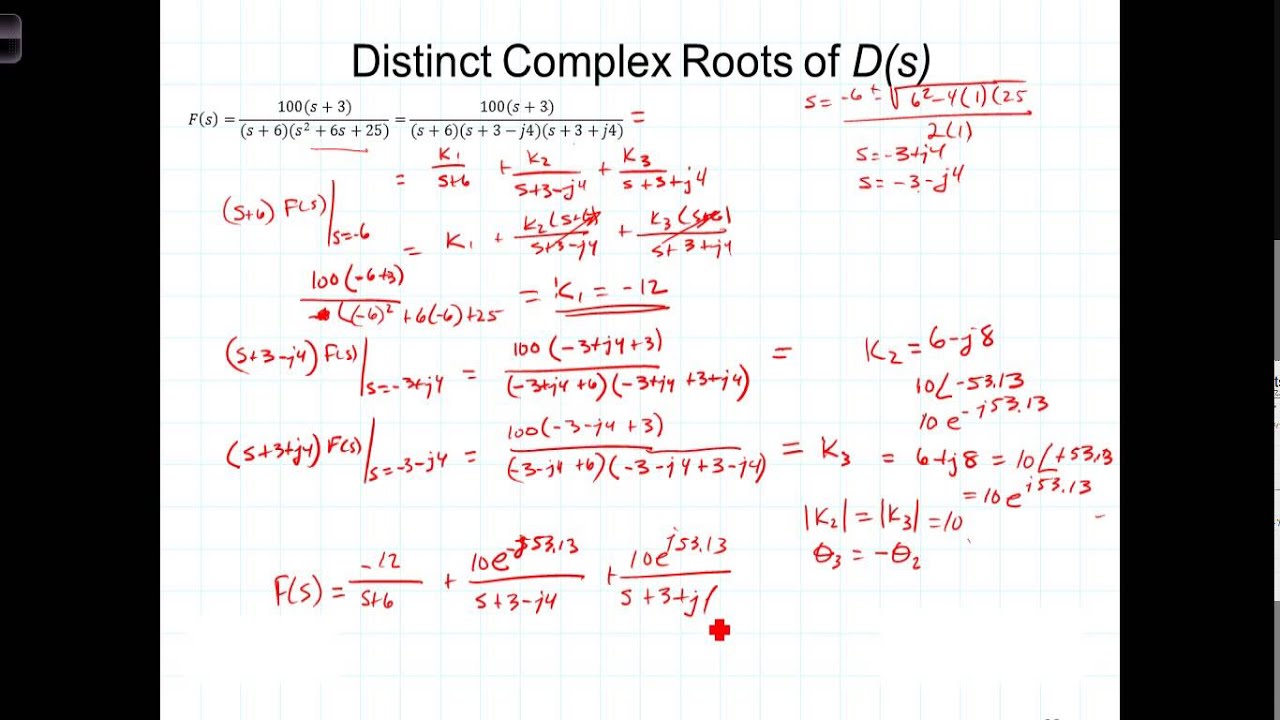 Distinct Complex Roots of D(s)
F(s) = 100(s + 3) / (s + 6)(s² + 6s + 25) = 100(s + 3) / (s + 6)(s + 3 − j4)(s + 3 + j4) =
s = -6 ± √6²-4(1)(25 / 2(1)
s = -3+j4
s = -3-j4
= K₁ / s+6 + K₂ / s+3-j4 + K₃ / s+3+j4
(s+6) F(s) | s=-6 = K₁ + K₂(s+6) / s+3-j4 + K₃(s+6) / s+3+j4
100(-6+3) / ((-6)² + 6(-6)+25 = K₁ = -12
(s+3-j4) F(s) | s=-3+j4 = 100(-3+j4+3) / (-3+j4+6)(-3+j4+3+j4) = K₂ = 6-j8
10∠-53.13
10e^-j53.13
(s+3+j4) F(s) | s=-3-j4 = 100(-3-j4+3) / (-3-j4+6)(-3-j4+3-j4) = K₃ = 6+j8 = 10∠+53.13
= 10e^j53.13
|K₂| = |K₃| = 10
θ₃ = -θ₂
F(s) = -12 / s+6 + 10e^-j53.13 / s+3-j4 + 10e^j53.13 / s+3+j(